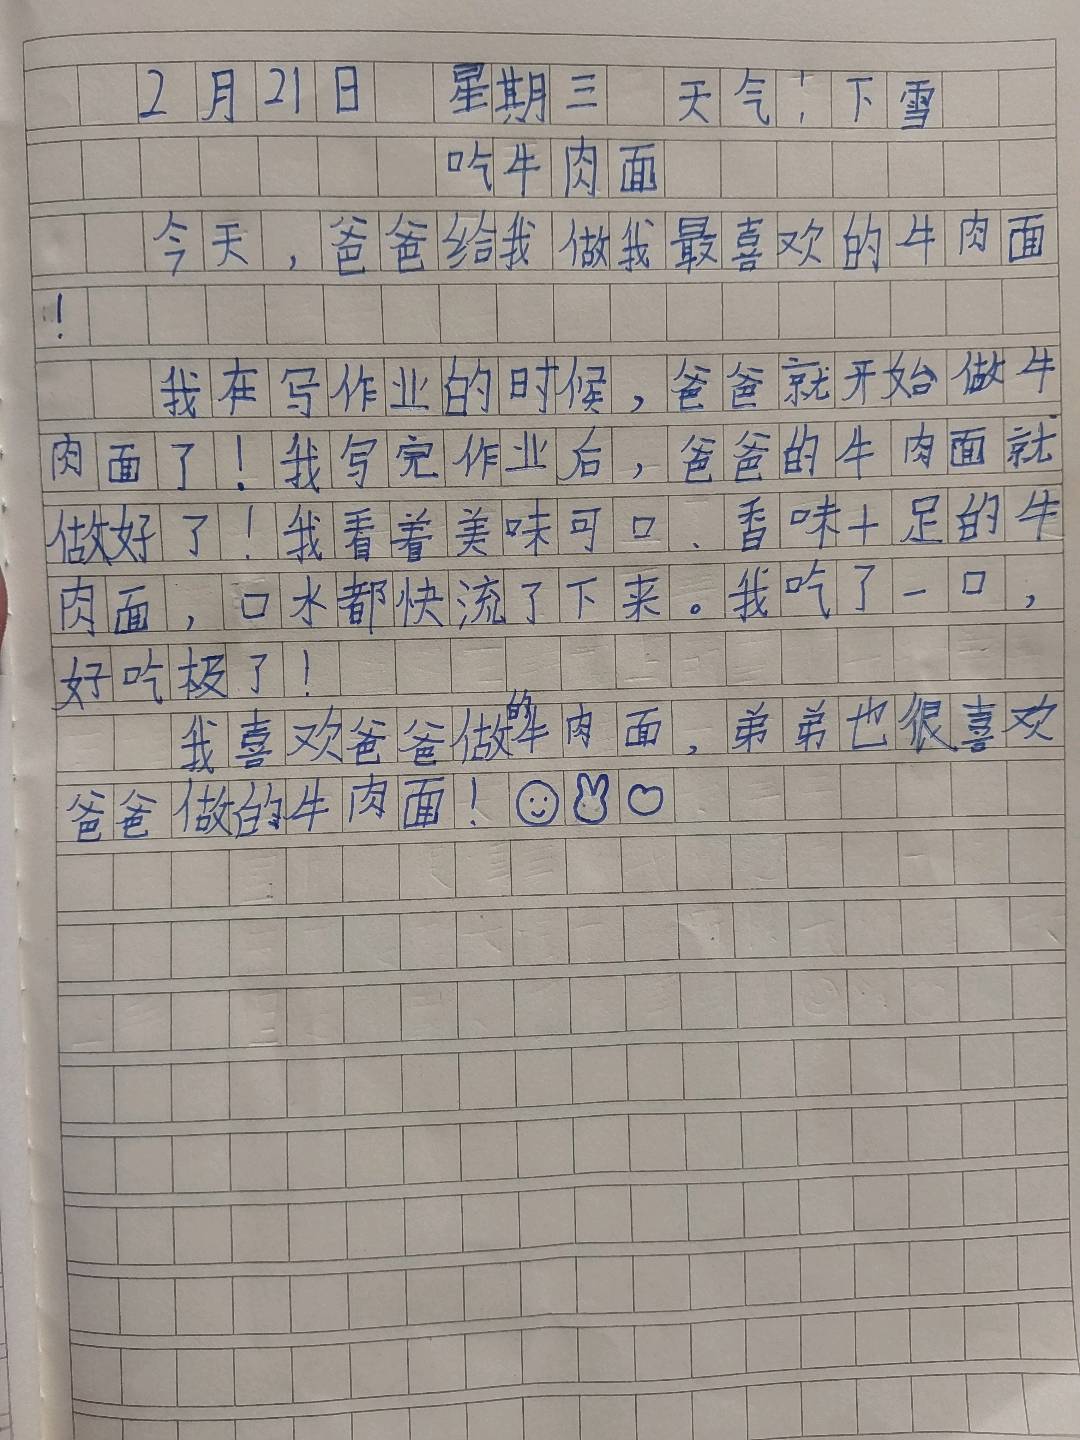 2月21日 星期三 天气：下雪
吃牛肉面
今天，爸爸给我做我最喜欢的牛肉面
！
我在写作业的时候，爸爸就开始做牛
肉面了！我写完作业后，爸爸的牛肉面就
做好了！我看着美味可口、香味十足的牛
肉面，口水都快流了下来。我吃了一口，
好吃极了！
我喜欢爸爸做的牛肉面，弟弟也很喜欢
爸爸做的牛肉面！